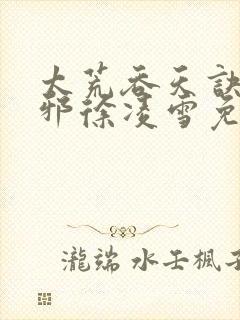 大荒吞天訣
邪徐凌雪免
瀧端 水壬楓子